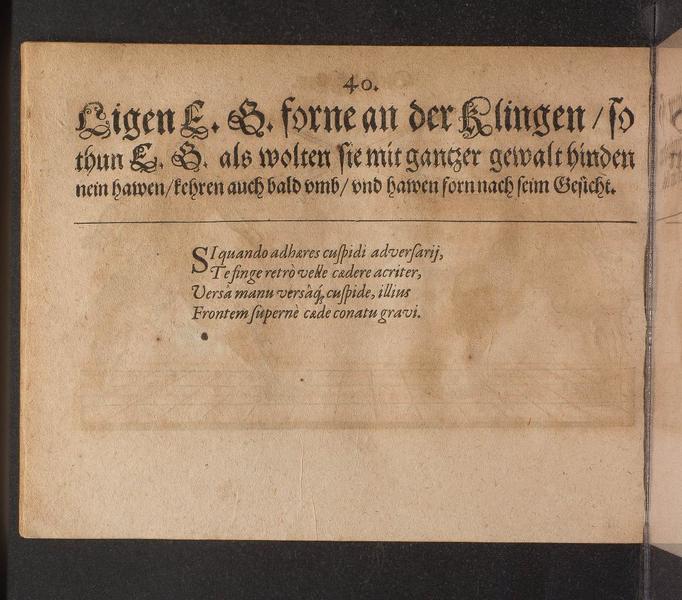 40.
Ligen E. G. forne an der Klingen / so
thun E. G. als wolten sie mit gantzer gewalt hinden
nein hawen / kehren auch bald vmb / vnd hawen forn nach seim Gesicht.
SI quando adhæres cuſpidi adverſarij,
Te finge retrò velle cædere acriter,
Verſâ manu verſâq́; cuſpide, illius
Frontem ſupernè cæde conatu gravi.